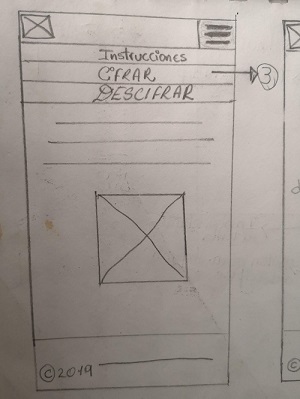 Instrucciones
CIFRAR
3
DESCIFRAR
© 2019
©